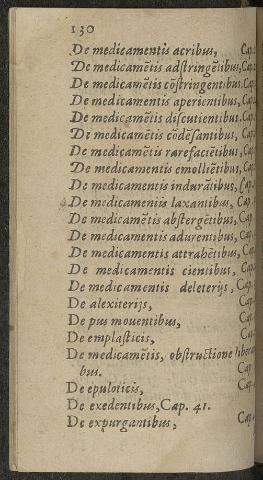 130
De medicamentis acribus, Cap.
De medicamētis adstringētibus, Cap.
De medicamētis cōstringentibus, Cap.
De medicamentis aperientibus, Cap.
De medicamētis discutientibus, Cap.
De medicamētis cōdēsantibus, Cap.
De medicamētis rarefaciētibus, Cap.
De medicamentis emolliētibus, Cap.
De medicamentis indurātibus, Cap.
De medicamentis laxantibus, Cap.
De medicamētis abstergētibus, Cap.
De medicamentis adurentibus, Cap.
De medicamentis attrahētibus, Cap.
De medicamentis cientibus, Cap.
De medicamentis deleterijs, Cap.
De alexiterijs, Cap.
De pus mouentibus, Cap.
De emplasticis, Cap.
De medicamētis, obstructione libera
bus. Cap.
De epuloticis, Cap.
De exedentibus, Cap. 41.
De expurgantibus, Cap.